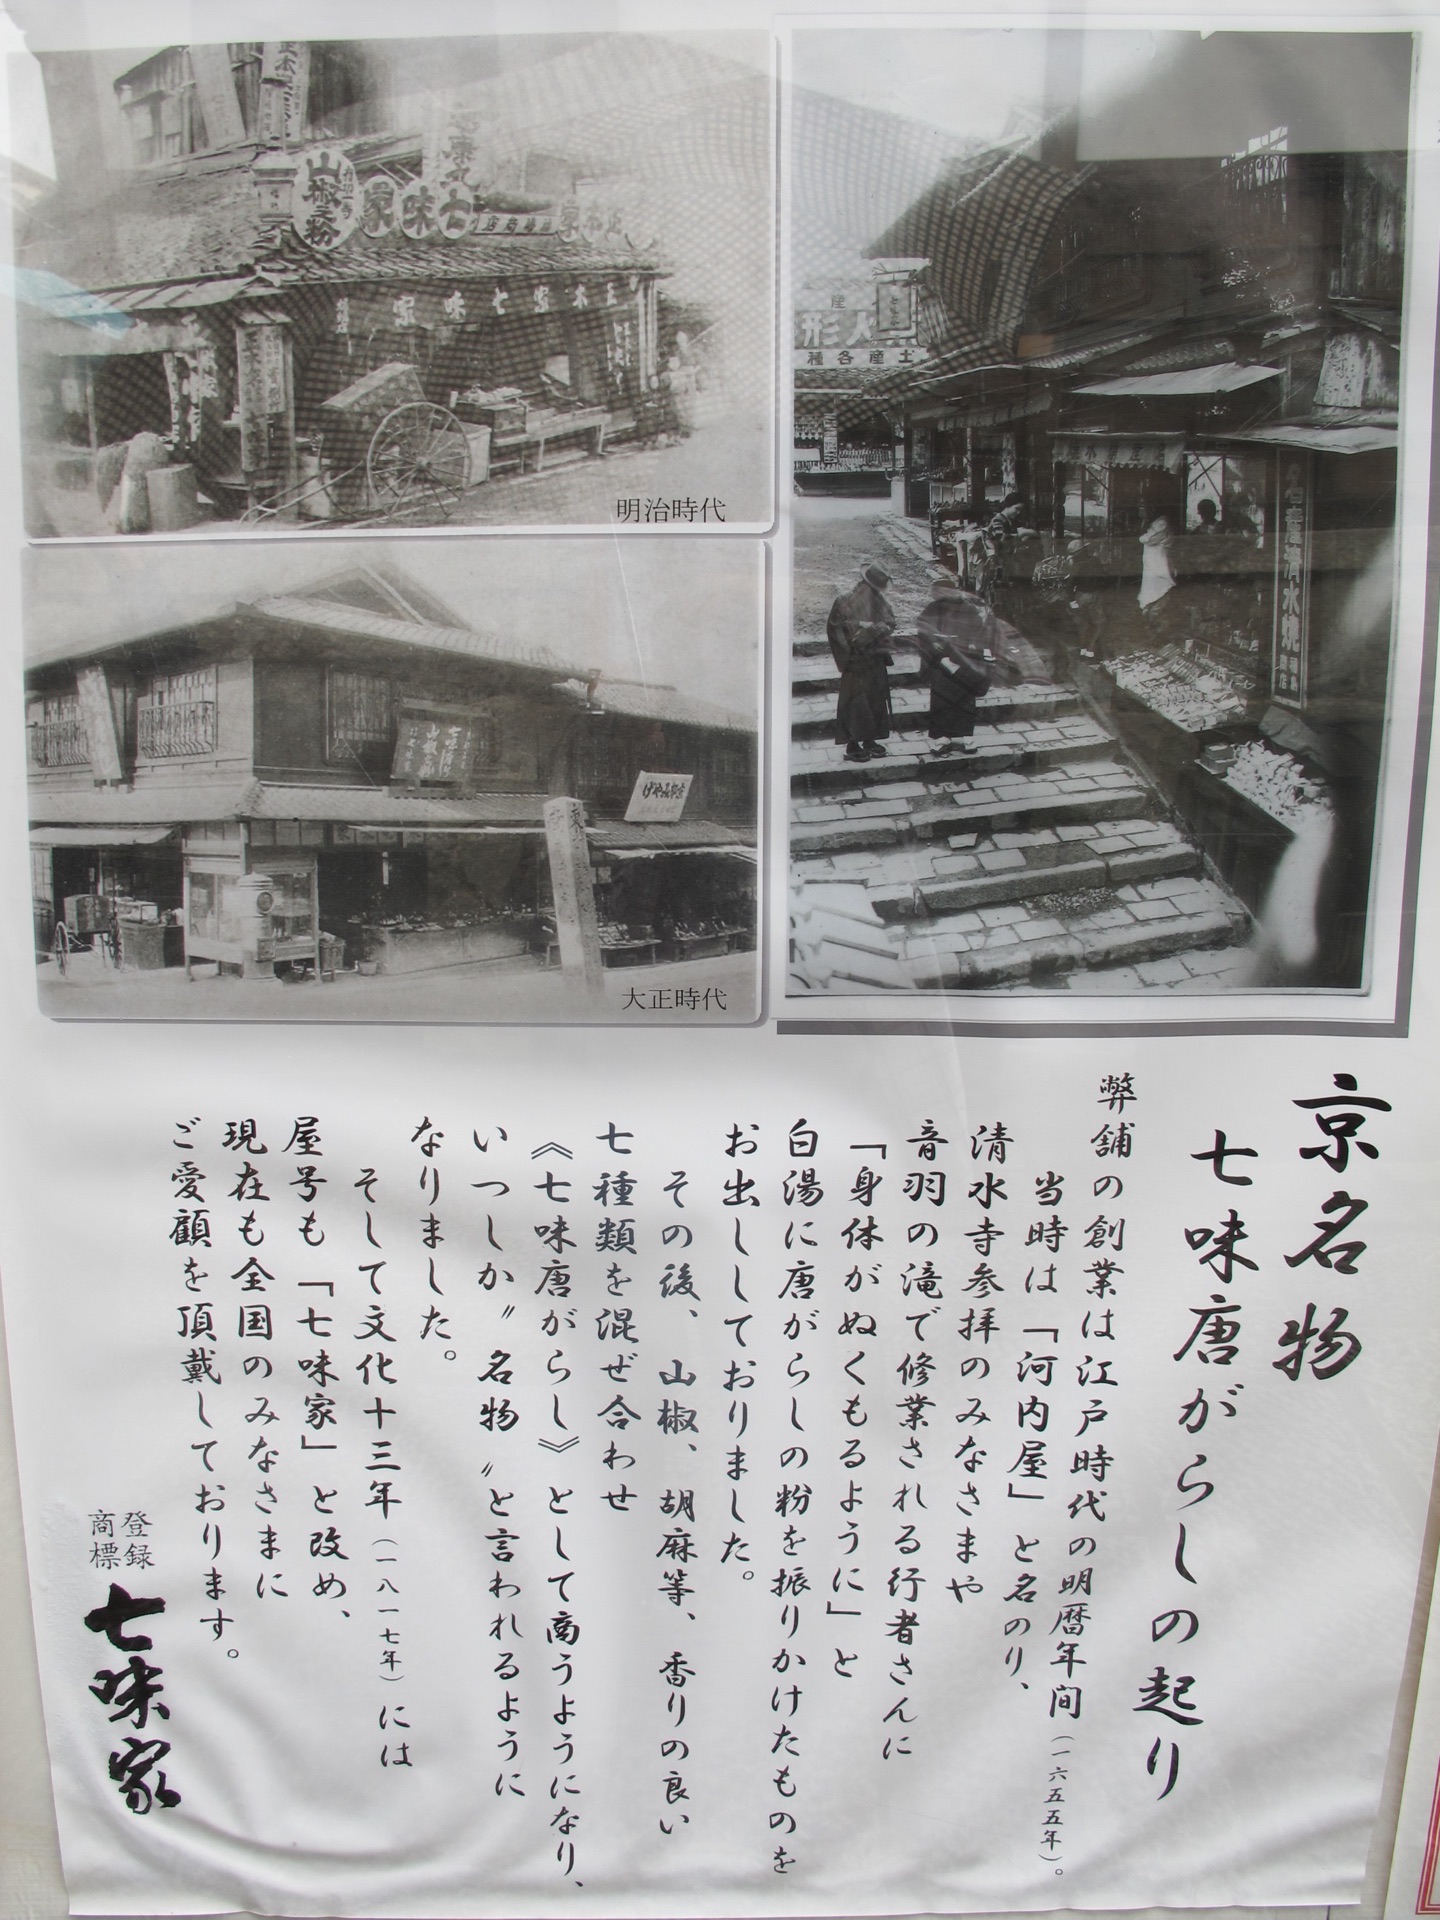 明治時代
大正時代
山椒之粉
七味家
正本家七味家
人形
各種土産
名産清水焼
京名物
七味唐がらしの起り
弊舗の創業は江戸時代の明暦年間（一六五五年）。
当時は「河内屋」と名のり、
清水寺参拝のみなさまや
音羽の滝で修業される行者さんに
「身体がぬくもるように」と
白湯に唐がらしの粉を振りかけたものを
お出ししておりました。
その後、山椒、胡麻等、香りの良い
七種類を混ぜ合わせ
《七味唐がらし》として商うようになり、
いつしか〝名物〟と言われるように
なりました。
そして文化十三年（一八一七年）には
屋号も「七味家」と改め、
現在も全国のみなさまに
ご愛顧を頂戴しております。
登録商標
七味家